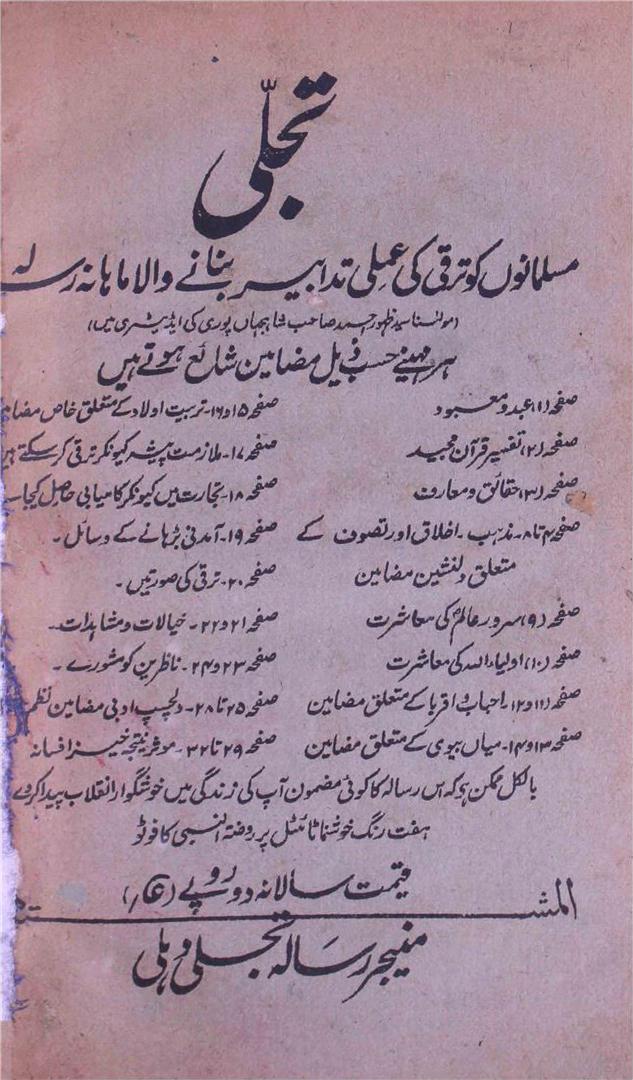 تجلّی
مسلمانوں کو ترقی کی عملی تدابیر بتانے والا ماہانہ رسالہ
(مولٰنا سید ظہور احمد صاحب شاہجہاں پوری کی ایڈیٹری میں)
ہر مہینے حسب ذیل مضامین شائع ہوتے ہیں
صفحہ (۱) عبد و معبود
صفحہ (۲) تفسیر قرآن مجید
صفحہ (۳) حقائق و معارف
صفحہ ۴ تا ۸۔ مذہب۔ اخلاق اور تصوف کے
متعلق دلنشین مضامین
صفحہ (۹) سرور عالمؐ کی معاشرت
صفحہ (۱۰) اولیاء اللہ کی معاشرت
صفحہ (۱۱ و ۱۲) احباب و اقربا کے متعلق مضامین
صفحہ ۱۳ و ۱۴۔ میاں بیوی کے متعلق مضامین
صفحہ ۱۵ و ۱۶۔ تربیت اولاد کے متعلق خاص مضا
صفحہ ۱۷۔ ملازمت پیشہ کیونکر ترقی کر سکتے ہیں
صفحہ ۱۸۔ تجارت میں کیونکر کامیابی حاصل کیجا
صفحہ ۱۹۔ آمدنی بڑہانے کے وسائل۔
صفحہ ۲۰۔ ترقی کی صورتیں۔
صفحہ ۲۱ و ۲۲۔ خیالات و مشاہدات۔
صفحہ ۲۳ و ۲۴۔ ناظرین کو مشورے۔
صفحہ ۲۵ تا ۲۸۔ دلچسپ ادبی مضامین نظم
صفحہ ۲۹ تا ۳۲۔ موثر و نتیجہ خیز افسانہ
بالکل ممکن ہے کہ اس رسالہ کا کوئی مضمون آپ کی زندگی میں خوشگوار انقلاب پیدا کر دے
ہفت رنگ خوشنما ٹائٹل پر روضۃ النبی کا فوٹو
قیمت سالانہ دو روپے
المشتہر
منیجر رسالہ تجلی دہلی